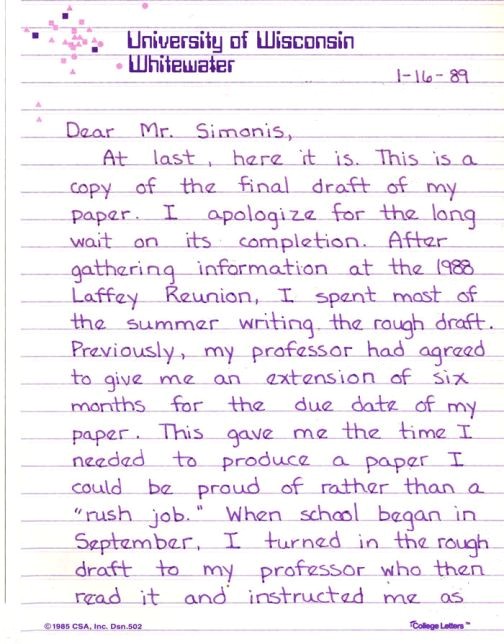 University of Wisconsin
Whitewater
1-16-89
Dear Mr. Simonis,
At last, here it is. This is a
copy of the final draft of my
paper. I apologize for the long
wait on its completion. After
gathering information at the 1988
Laffey Reunion, I spent most of
the summer writing the rough draft.
Previously, my professor had agreed
to give me an extension of six
months for the due date of my
paper. This gave me the time I
needed to produce a paper I
could be proud of rather than a
"rush job." When school began in
September, I turned in the rough
draft to my professor who then
read it and instructed me as
©1985 CSA, Inc. Dsn.502
College Letters™